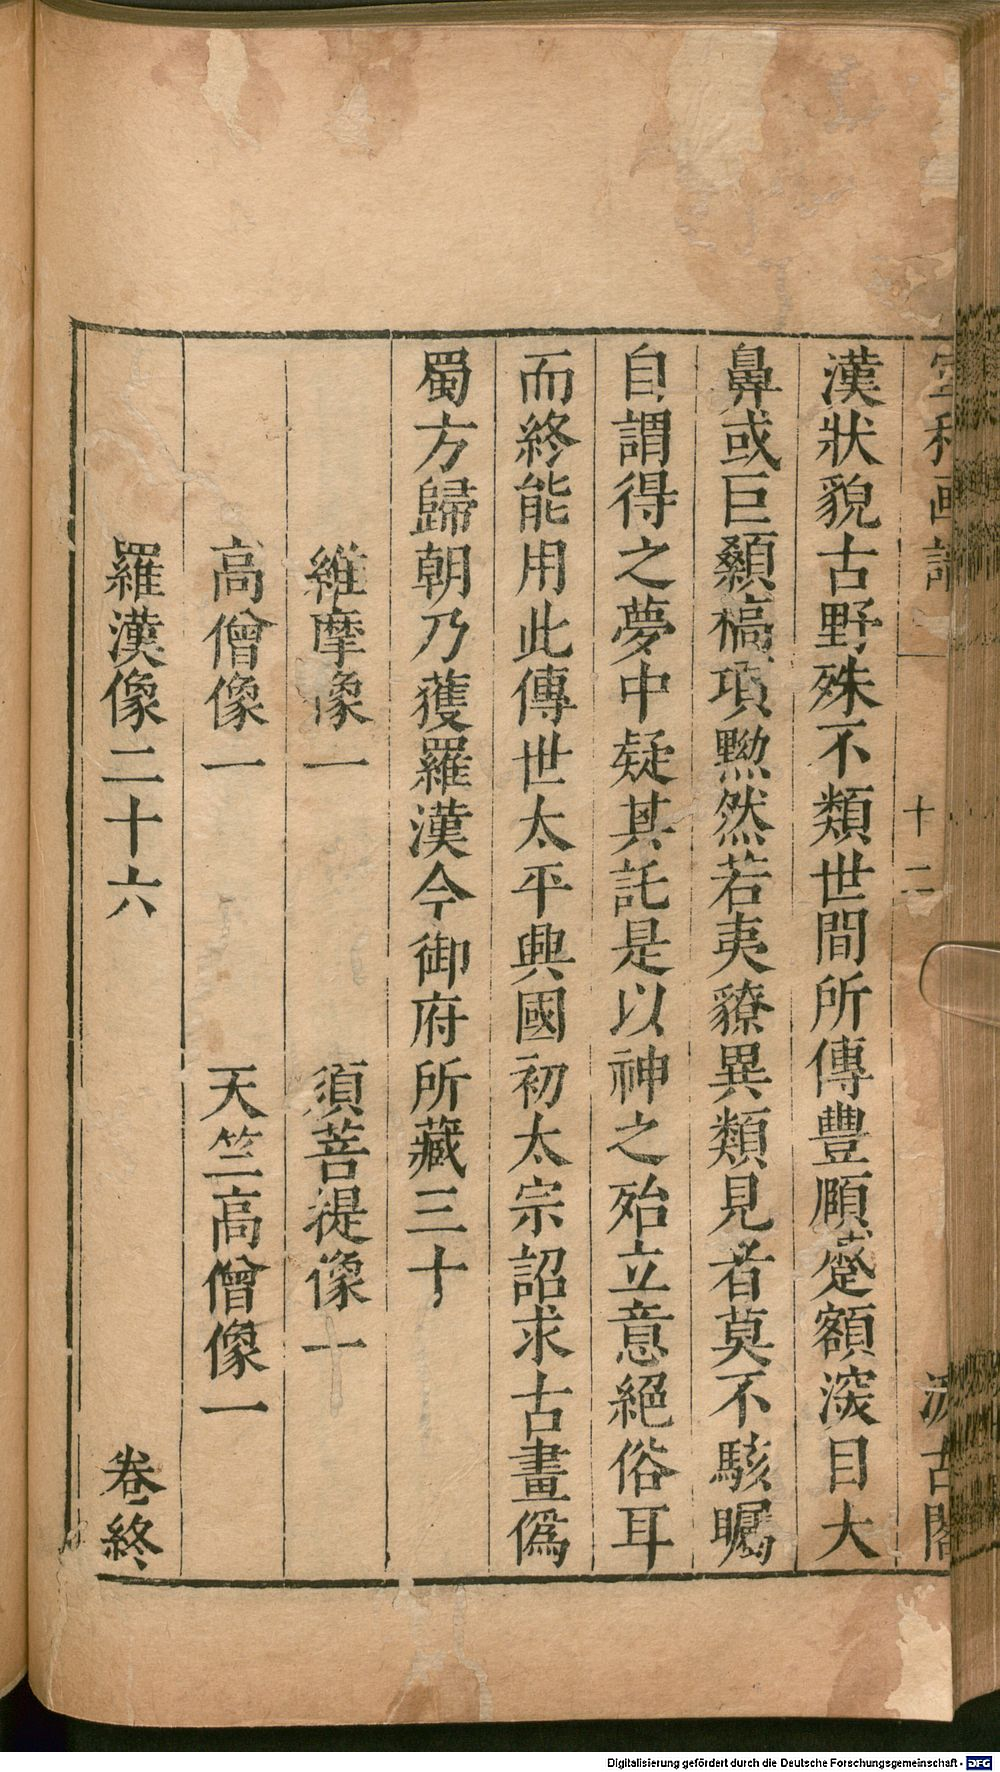 宣和画譜 十二 汲古閣
漢狀貌古野殊不類世間所傳豐頤蹙額深目大
鼻或巨顙槁項黝然若夷獠異類見者莫不駭矚
自謂得之夢中疑其託是以神之殆立意絕俗耳
而終能用此傳世太平興國初太宗詔求古畫僞
蜀方歸朝乃獲羅漢今御府所藏三十
維摩像一 須菩提像一
高僧像一 天竺高僧像一
羅漢像二十六 卷終
Digitalisierung gefördert durch die Deutsche Forschungsgemeinschaft - DFG